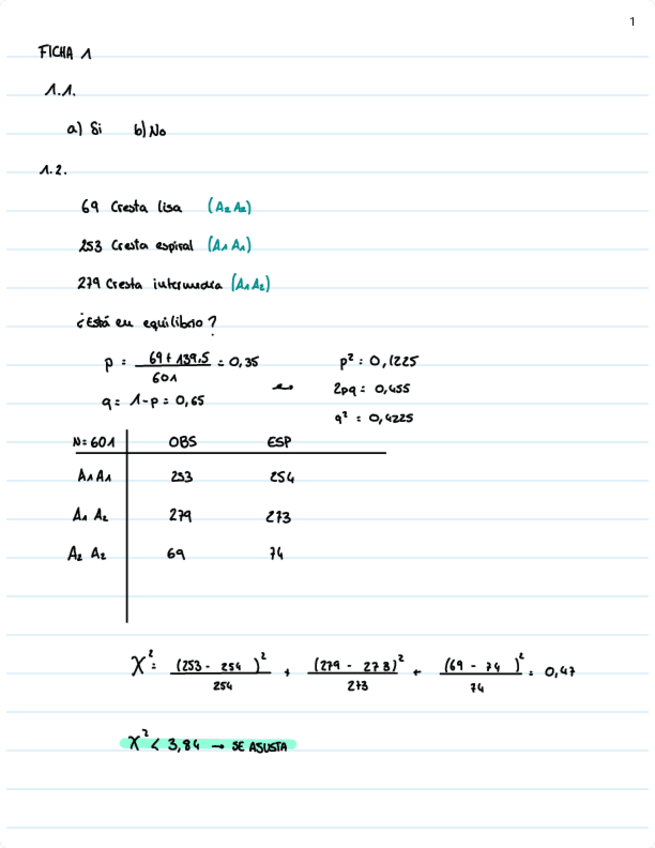 1
FICHA 1
1.1.
a) Si b) No
1.2.
69 Cresta lisa (A₂ A₂)
253 Cresta espiral (A₁ A₁)
279 Cresta intermedia (A₁ A₂)
¿Está en equilibrio?
p = 69 + 139,5 / 601 = 0,35 p² = 0,1225
q = 1 - p = 0,65 2pq = 0,455
q² = 0,4225
N = 601 OBS ESP
A₁ A₁ 253 254
A₁ A₂ 279 273
A₂ A₂ 69 74
χ² = (253 - 254)² / 254 + (279 - 273)² / 273 + (69 - 74)² / 74 = 0,47
χ² < 3,84 → SE ASUSTA